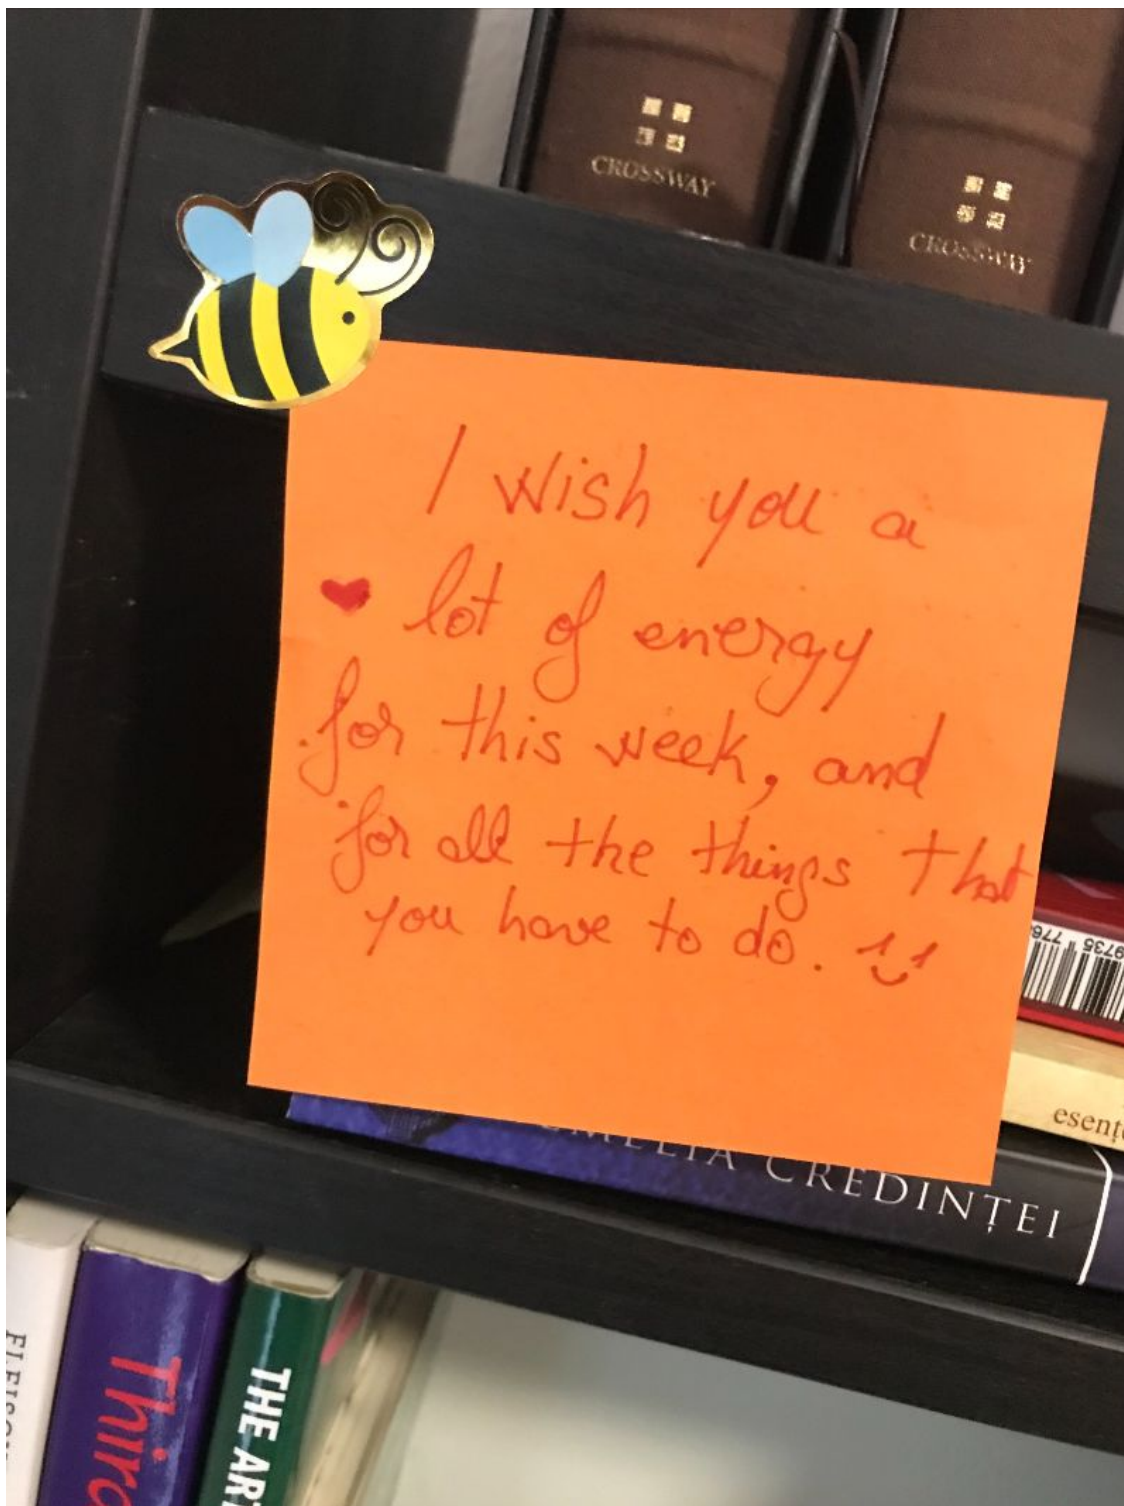 CROSSWAY
CROSSWAY
I wish you a
lot of energy
for this week, and
for all the things that
you have to do.
esenț
CREDINȚEI
THE ART